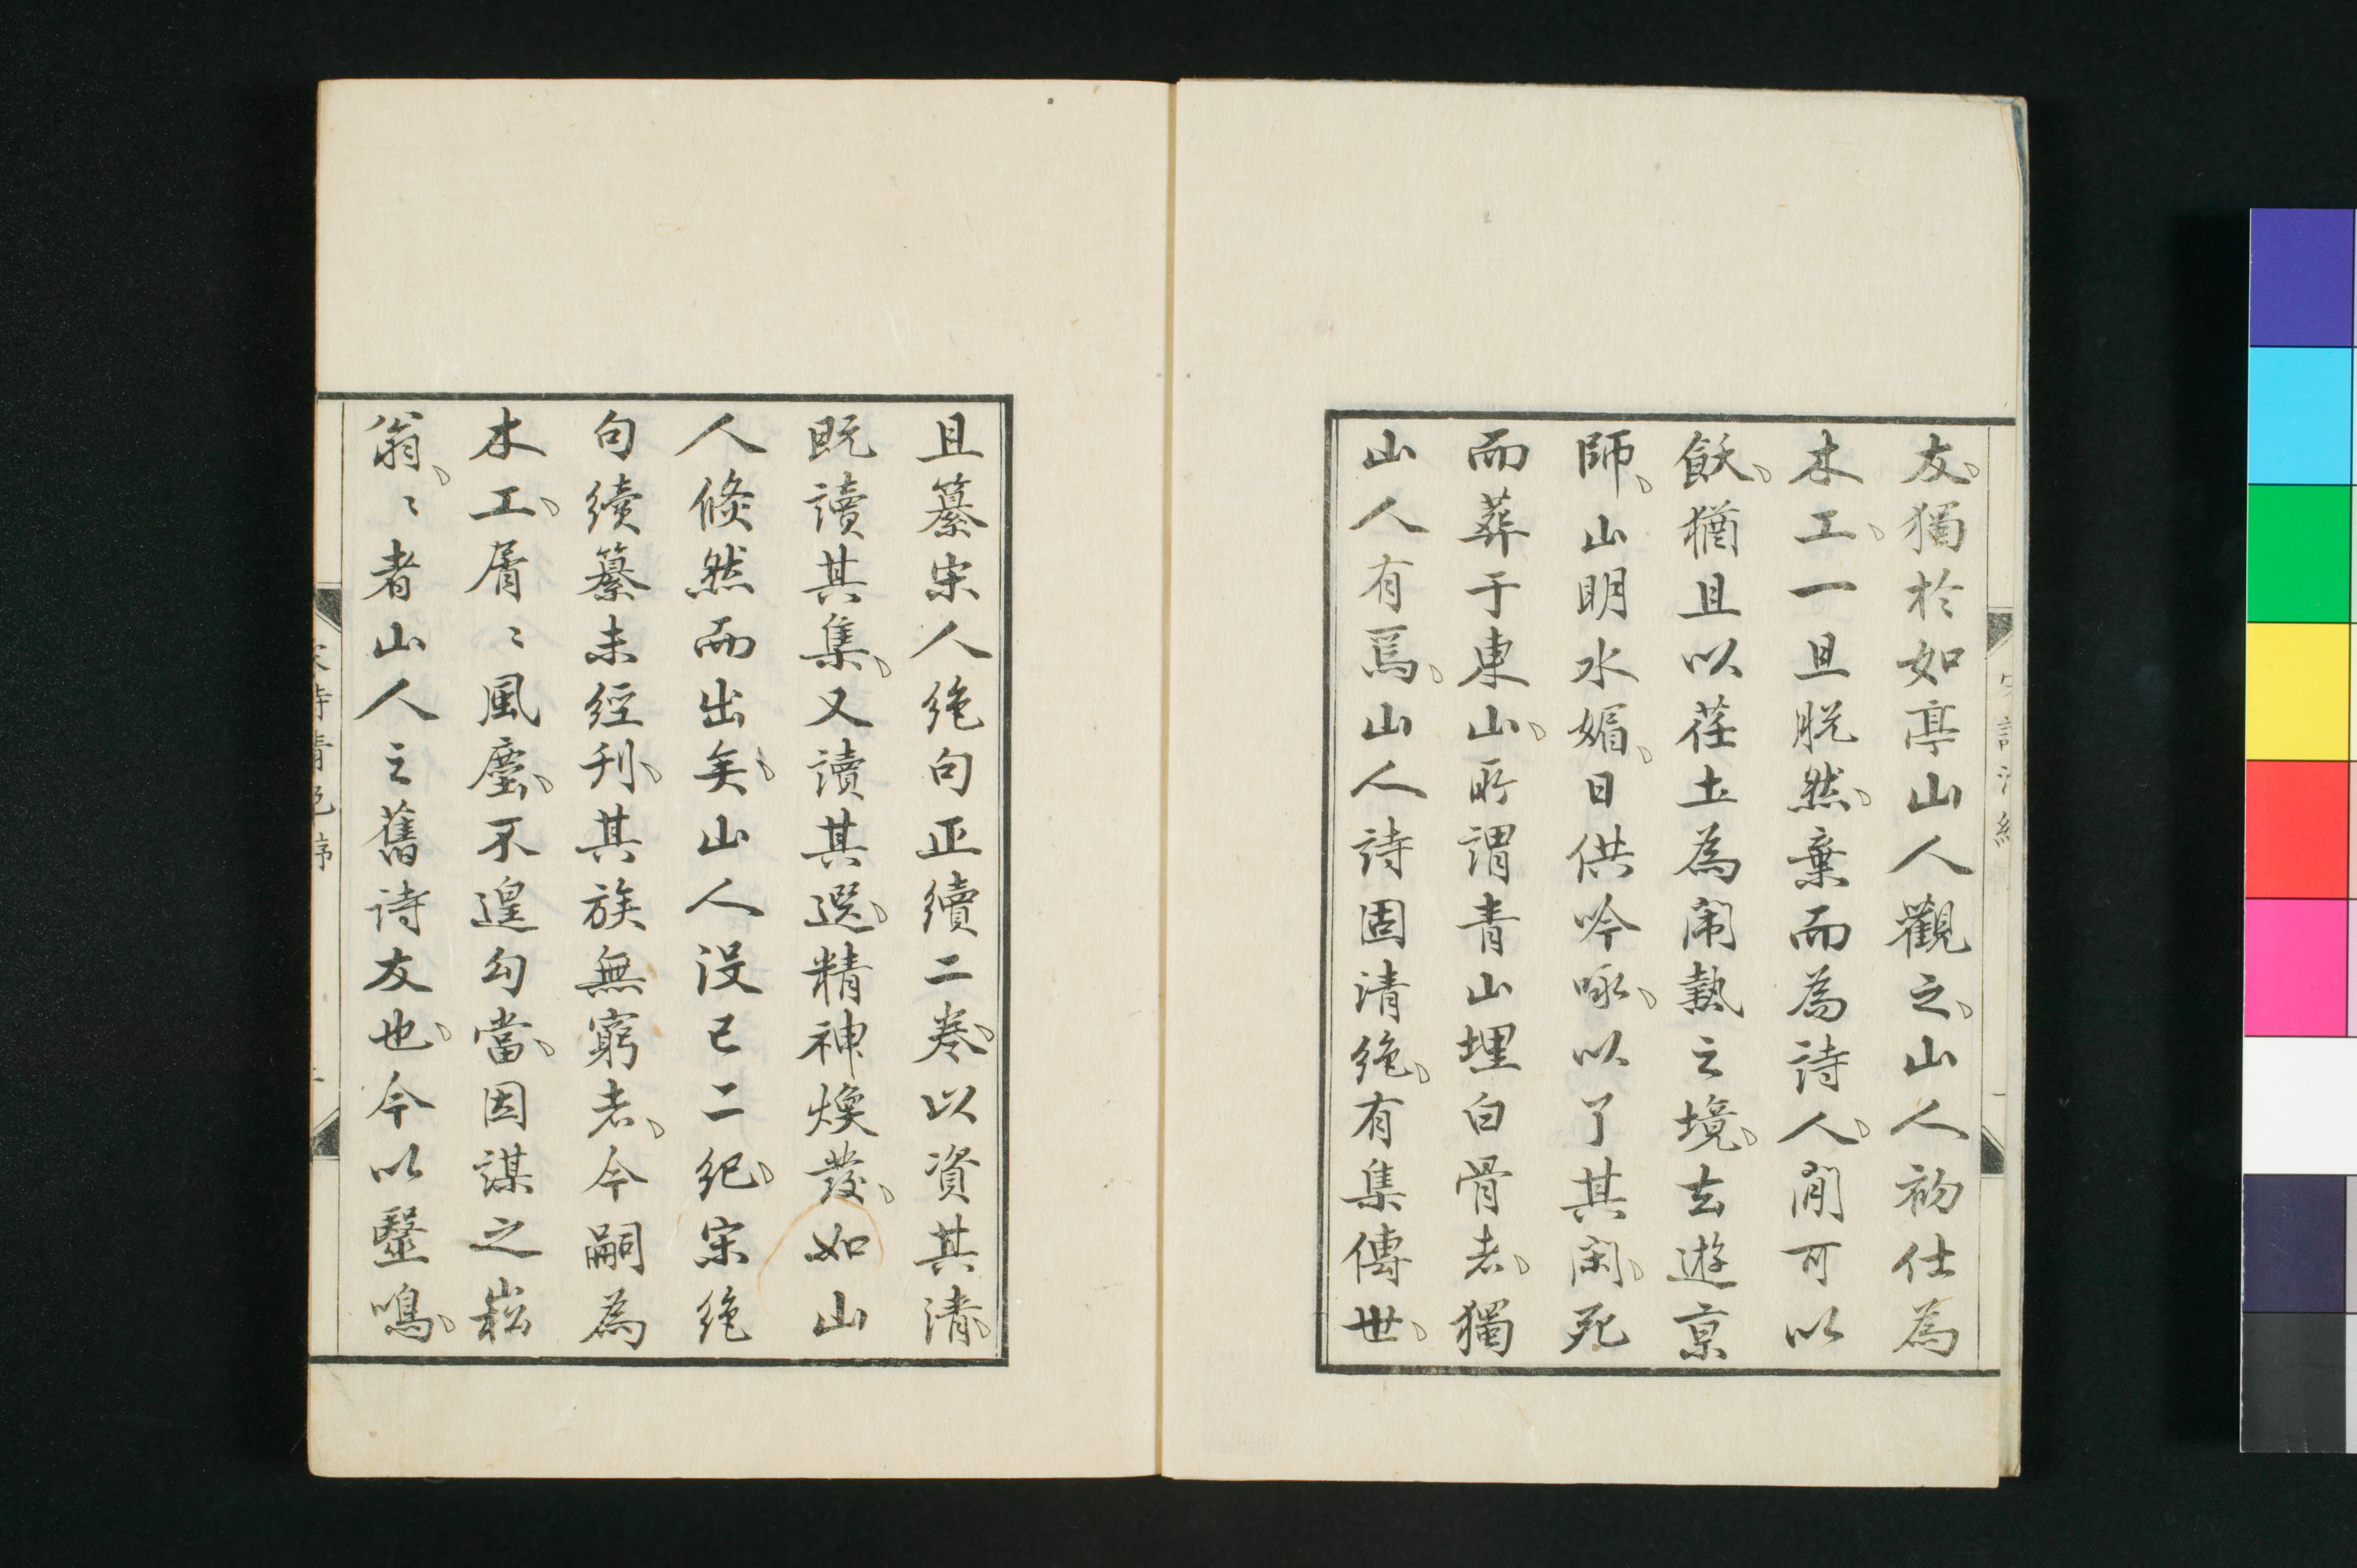 友、獨於如亭山人觀之、山人初仕為
木工、一旦脫然、棄而為詩人、閒可以
飫、猶且以荏土為閙熱之境、去遊京
師、山明水媚、日供吟咏、以了其閑、死
而葬于東山、所謂青山埋白骨者、獨
山人有焉、山人詩固清絶、有集傳世、
且纂宋人絶句正續二卷、以資其清、
既讀其集、又讀其選、精神煥發、如山
人倏然而出矣、山人沒已二紀、宋絶
句續纂未經刊、其族無窮者、今嗣為
木工、屑〻風塵、不遑勾當、因謀之崧
翁、〻者山人之舊詩友也、今以毉鳴、
宋詩清絶序